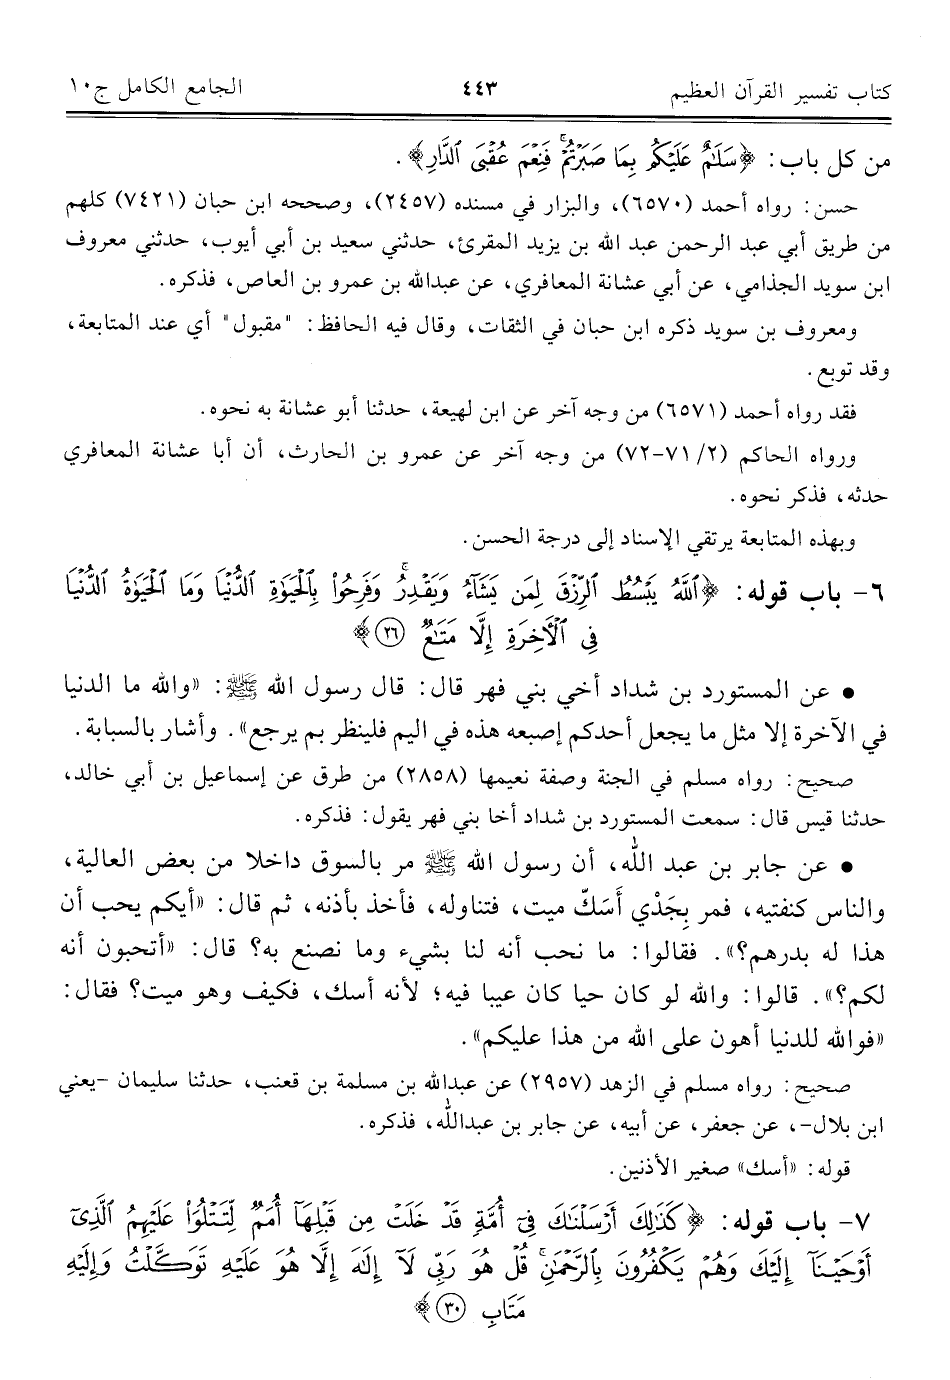 كتاب تفسير القرآن العظيم ٤٤٣ الجامع الكامل ج١٠
من كل باب: ﴿سَلَٰمٌ عَلَيۡكُم بِمَا صَبَرۡتُمۡۚ فَنِعۡمَ عُقۡبَى ٱلدَّارِ﴾.
حسن: رواه أحمد (٦٥٧٠)، والبزار في مسنده (٢٤٥٧)، وصححه ابن حبان (٧٤٢١) كلهم
من طريق أبي عبد الرحمن عبد الله بن يزيد المقرئ، حدثني سعيد بن أبي أيوب، حدثني معروف
ابن سويد الجذامي، عن أبي عشانة المعافري، عن عبدالله بن عمرو بن العاص، فذكره.
ومعروف بن سويد ذكره ابن حبان في الثقات، وقال فيه الحافظ: "مقبول" أي عند المتابعة،
وقد توبع.
فقد رواه أحمد (٦٥٧١) من وجه آخر عن ابن لهيعة، حدثنا أبو عشانة به نحوه.
ورواه الحاكم (٢/ ٧١-٧٢) من وجه آخر عن عمرو بن الحارث، أن أبا عشانة المعافري
حدثه، فذكر نحوه.
وبهذه المتابعة يرتقي الإسناد إلى درجة الحسن.
٦- باب قوله: ﴿ٱللَّهُ يَبۡسُطُ ٱلرِّزۡقَ لِمَن يَشَآءُ وَيَقۡدِرُۚ وَفَرِحُواْ بِٱلۡحَيَوٰةِ ٱلدُّنۡيَا وَمَا ٱلۡحَيَوٰةُ ٱلدُّنۡيَا
فِي ٱلۡأٓخِرَةِ إِلَّا مَتَٰعٞ ٢٦﴾
• عن المستورد بن شداد أخي بني فهر قال: قال رسول الله ﷺ: «والله ما الدنيا
في الآخرة إلا مثل ما يجعل أحدكم إصبعه هذه في اليم فلينظر بم يرجع». وأشار بالسبابة.
صحيح: رواه مسلم في الجنة وصفة نعيمها (٢٨٥٨) من طرق عن إسماعيل بن أبي خالد،
حدثنا قيس قال: سمعت المستورد بن شداد أخا بني فهر يقول: فذكره.
• عن جابر بن عبد الله، أن رسول الله ﷺ مر بالسوق داخلا من بعض العالية،
والناس كنفتيه، فمر بِجَدْي أَسَكّ ميت، فتناوله، فأخذ بأذنه، ثم قال: «أيكم يحب أن
هذا له بدرهم؟». فقالوا: ما نحب أنه لنا بشيء وما نصنع به؟ قال: «أتحبون أنه
لكم؟». قالوا: والله لو كان حيا كان عيبا فيه؛ لأنه أسك، فكيف وهو ميت؟ فقال:
«فوالله للدنيا أهون على الله من هذا عليكم».
صحيح: رواه مسلم في الزهد (٢٩٥٧) عن عبدالله بن مسلمة بن قعنب، حدثنا سليمان -يعني
ابن بلال-، عن جعفر، عن أبيه، عن جابر بن عبدالله، فذكره.
قوله: «أسك» صغير الأذنين.
٧- باب قوله: ﴿كَذَٰلِكَ أَرۡسَلۡنَٰكَ فِيٓ أُمَّةٖ قَدۡ خَلَتۡ مِن قَبۡلِهَآ أُمَمٞ لِّتَتۡلُوَاْ عَلَيۡهِمُ ٱلَّذِيٓ
أَوۡحَيۡنَآ إِلَيۡكَ وَهُمۡ يَكۡفُرُونَ بِٱلرَّحۡمَٰنِۚ قُلۡ هُوَ رَبِّي لَآ إِلَٰهَ إِلَّا هُوَ عَلَيۡهِ تَوَكَّلۡتُ وَإِلَيۡهِ
مَتَابِ ٣٠﴾